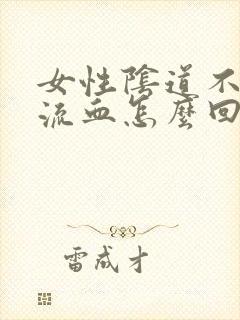 女性陰道不
流血怎麼回
雷成才